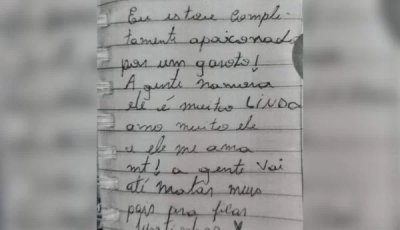 Eu estou comple-
tamente apaixonad
por um garoto!
A gente namora
ele é muito LINDO
amo muito ele
e ele me ama
mt! a gente vai
até matar meus
pais pra ficar